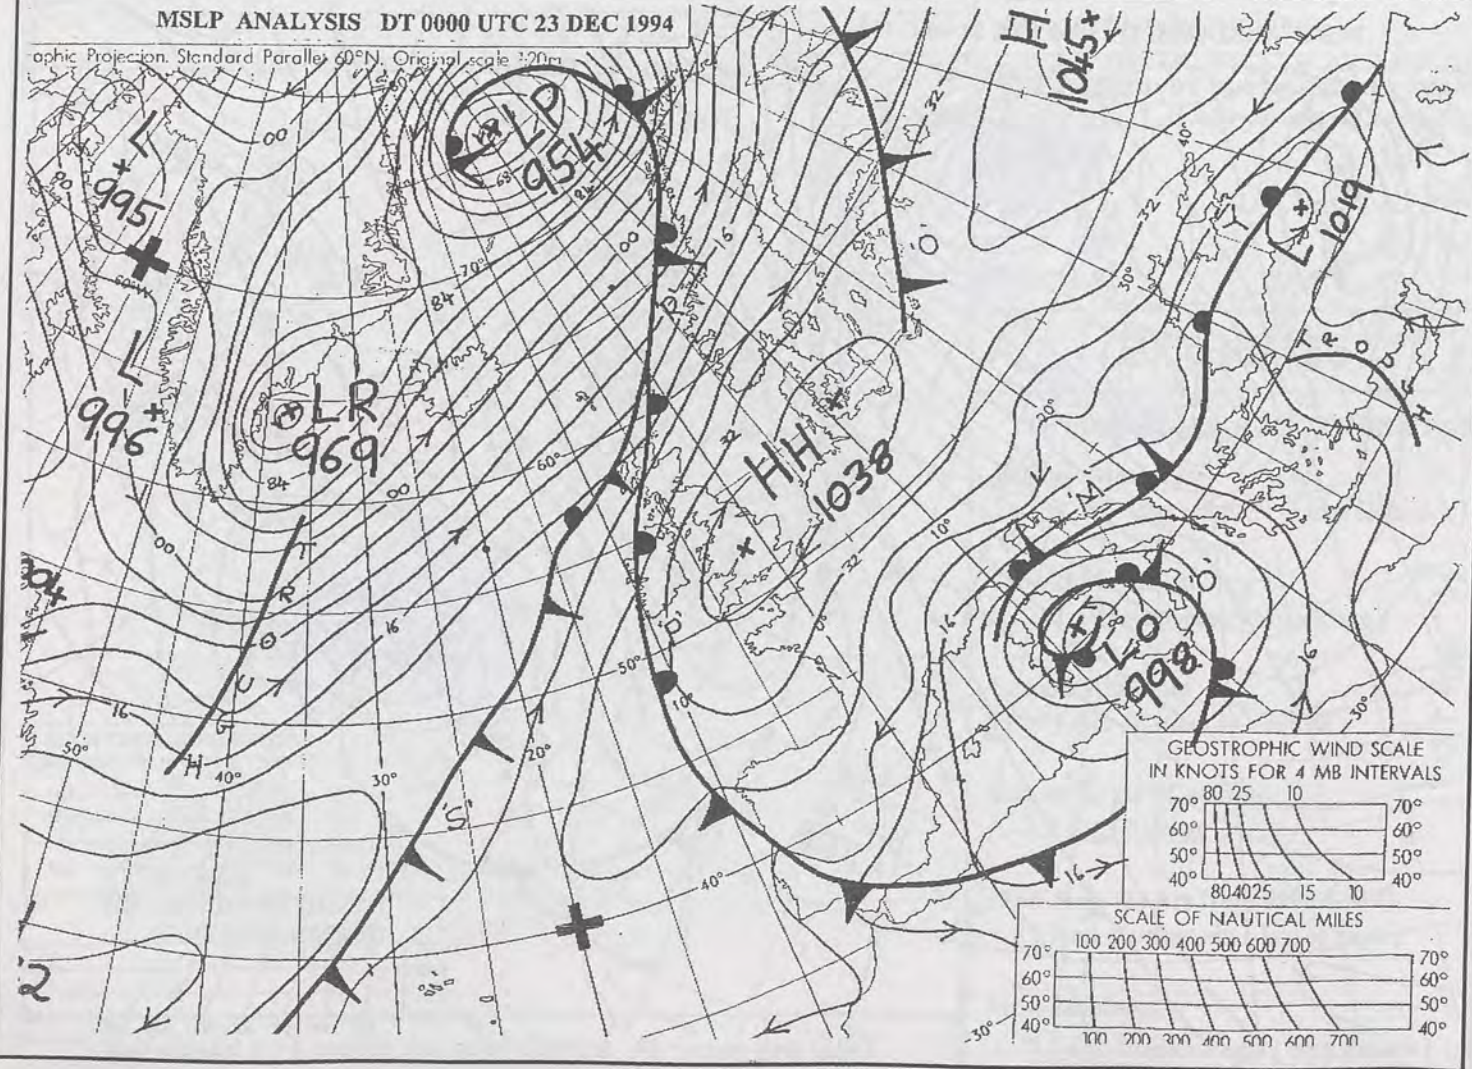 MSLP ANALYSIS DT 0000 UTC 23 DEC 1994
ophic Projection. Standard Parallel 60°N. Original scale 1:20m
H
1045
L
995
LP
954
L
996
LR
969
HH
1038
L
1019
LO
998
TROUGH
TROUGH
'R'
'O'
'P'
'M'
'O'
'S'
00
80
68
84
84
70°
84
00
00
00
60°
60°W
16
16
16
32
32
32
32
32
32
16
16
16
16
16
50°
50°
40°
40°
40°
30°
30°
30°
30°
20°
20°
10°
10°
0°
GEOSTROPHIC WIND SCALE
IN KNOTS FOR 4 MB INTERVALS
80 25 10
70° 70°
60° 60°
50° 50°
40° 40°
80 40 25 15 10
SCALE OF NAUTICAL MILES
100 200 300 400 500 600 700
70° 70°
60° 60°
50° 50°
40° 40°
100 200 300 400 500 600 700